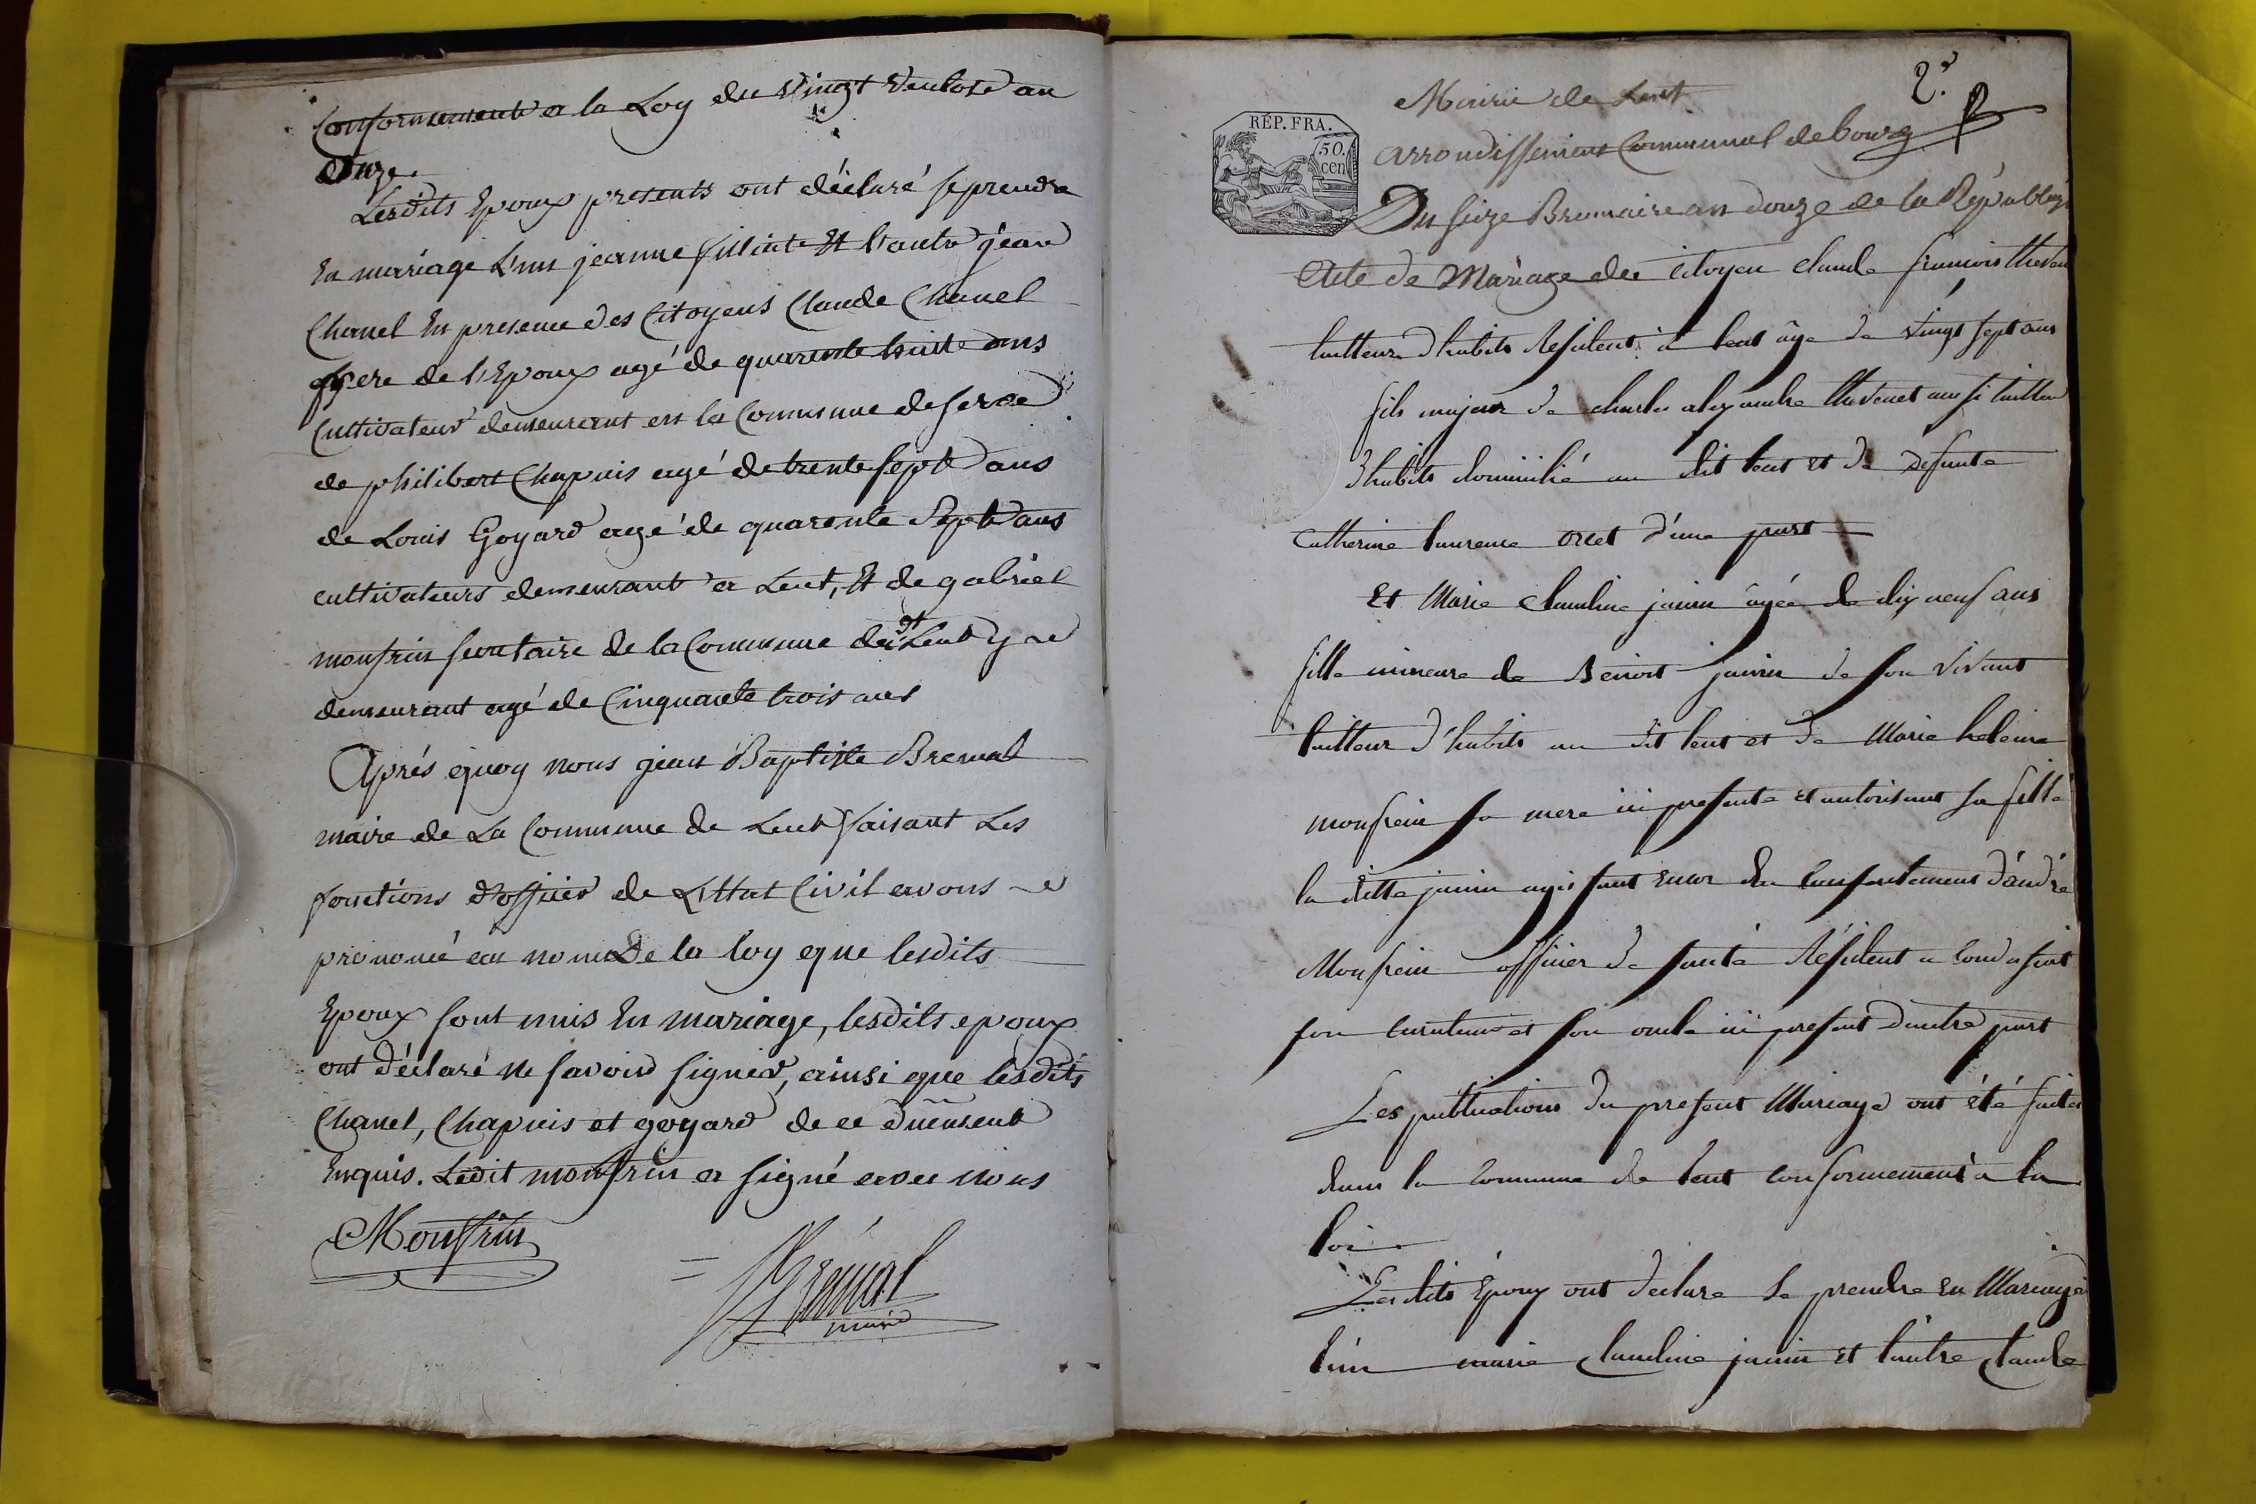 Conformement a la Loy du Vingt Ventose an
onze.
Lesdits Epoux presents ont déclaré se prendre
En mariage L'un jeanne filliate Et l'autre jean
Chanel En presence des Citoyens Claude Chanel
frere de l'Epoux agé de quarente huitte ans
Cultivateur demeurant en la Commune de servas
de philibert Chapuis agé de trente sept ans
de Louis Goyard agé de quarente Sept ans
cultivateurs demeurant a Lent, Et de gabriel
monfrin secretaire de la Commune dudt Lent y
demeurant agé de Cinquante trois ans
Aprés quoy nous jean Baptiste Bremal
maire de La Commune de Lent faisant Les
fonctions d'officier de L'Ettat Civil avons
prononcé au nom De la loy que lesdits
Epoux sont unis En mariage, lesdits epoux
ont déclaré ne savoir signer, ainsi que lesdits
Chanel, Chapuis et goyard de ce duement
Enquis. Ledit monfrin a signé avec nous
Monfrin
Brémal
maire
2.e
Mairie de Lent
REP. FRA.
50.
cen
arrondissement Communal de bourg
Du seize Brumaire an douze de la Républiq
Acte de Mariage du Citoyen Claude francois theven
tailleur d'habits Résident à lent âge de vingt sept ans
fils majeur de charles alexandre thevenet aussi tailleur
d'habits domicilié au dit lent et de defunte
Catherine laurence orcet d'une part
Et Marie Claudine janin âgée de dix neuf ans
fille mineure de Benoit janin de son vivant
tailleur d'habits au dit lent et de Marie heleine
monfrein sa mere ici presente et autorisant sa fille
la ditte janin agissant encor du consentement d'andré
Monfrein officier de santé Résident a
son curateur et son oncle ici present d'autre part
Les publications du present Mariage ont été faites
dans la commune de lent conformement a la
loi
Lesdits Epoux ont declare se prendre En Mariage
l'un marie Claudine janin et l'autre Claude